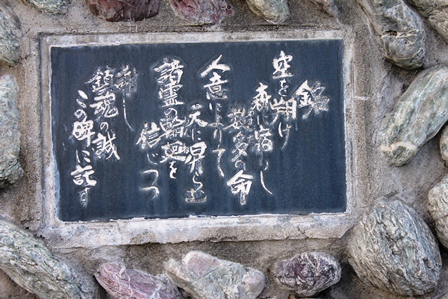 銘
空を翔け
森に宿りし
数多の命
人意によりて
天に昇らむ
諸霊輪廻を
信じつつ
刻し
鎮魂の誠
この碑に託す